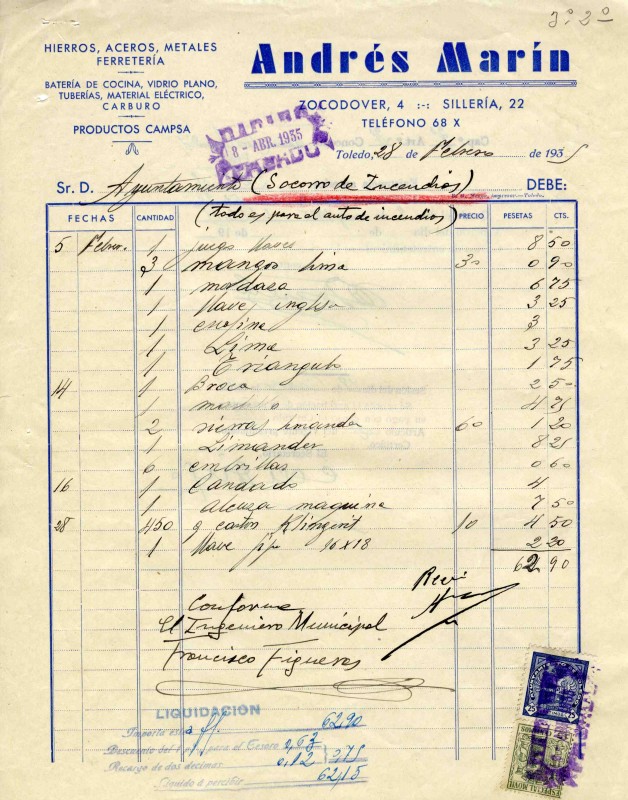 3º 2º
HIERROS, ACEROS, METALES
FERRETERÍA
BATERÍA DE COCINA, VIDRIO PLANO,
TUBERÍAS, MATERIAL ELÉCTRICO,
CARBURO
PRODUCTOS CAMPSA
Andrés Marín
ZOCODOVER, 4 :-: SILLERÍA, 22
TELÉFONO 68 X
8 - ABR. 1935
Toledo, 28 de Febrero de 1935
Sr. D. Ayuntamiento (Socorro de Incendios) DEBE:
FECHAS CANTIDAD (todo es para el auto de incendios) PRECIO PESETAS CTS.
5 Febr. 1 juego llaves 8 50
3 mangos lima 30 0 90
1 mordaza 6 75
1 llave inglesa 3 25
1 escofina 3
1 Lima 3 25
1 Triangulo 1 75
14 1 Broca 2 50
1 martillo 4 75
2 sierras 60 1 20
1 8 25
6 0 60
16 1 Candado 4
1 alcuza maquina 7 50
28 450 g carton Klingerit 10 4 50
1 llave fija 16x18 2 20
62 90
Conforme
El Ingeniero Municipal
Francisco Figueras
LIQUIDACIÓN
Importa esta 62,90
Descuento del 1 para el Tesoro 0,63
Recargo de dos décimas 0,12 0,75
Líquido a percibir 62,15
ESPECIAL MÓVIL